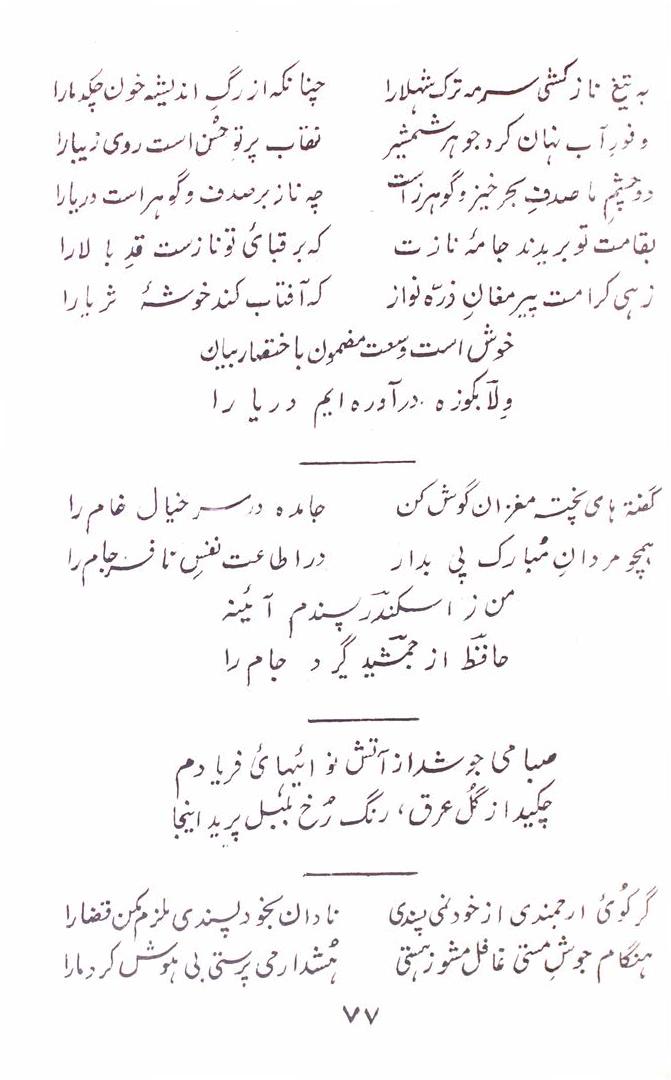 به تیغ ناز کشی سرمه ترک شهلا را چنانکه از رگ اندیشه خون چکد ما را
وفور آب نهان کرد جوهر شمشیر نقاب پرتو حُسن است روی زیبا را
دو چشم ما صدفِ بحر خیز و گوهرزاست چه ناز بر صدف و گوهر است دریا را
بقامت تو بریدند جامهٔ نازت که بر قبائ تو نازست قدِ بالا را
زهی کرامت پیر مغانِ ذرّه نواز که آفتاب کند خوشهٔ ثریا را
خوش است وسعت مضمون با ختصار بیان
وِلاّ بکوزه درآورده ایم دریا را
گفتهٔ های پخته مغزان گوش کن جا مده در سر خیال خام را
همچو مردانِ مُبارک پی بدار در اطاعت نفسِ نافرجام را
من ز اسکندر پسندم آئینه
حافظ از جمشید گیرد جام را
صبا می جوشد از آتش نوائیهائ فریادم
چکید از گُل عرق، رنگ رُخِ بلبل پرید اینجا
گر کوئ ارجمندی از خود نمی پسندی نادان بخود پسندی ملزم مکن قضا را
هنگام جوشِ مستی غافل مشو ز هستی هُشدار می پرستی بی هوش کرد ما را
۷۷